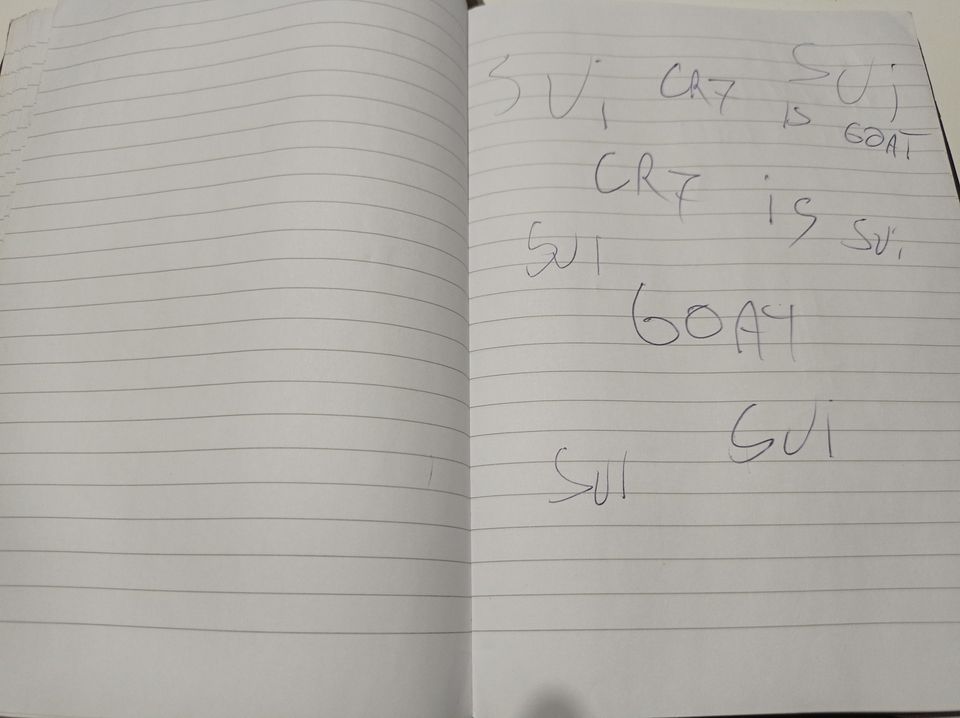 SUi CR7 SUi
is GOAT
CR7 is
SUI SUi
GOAT
SUi
SUI